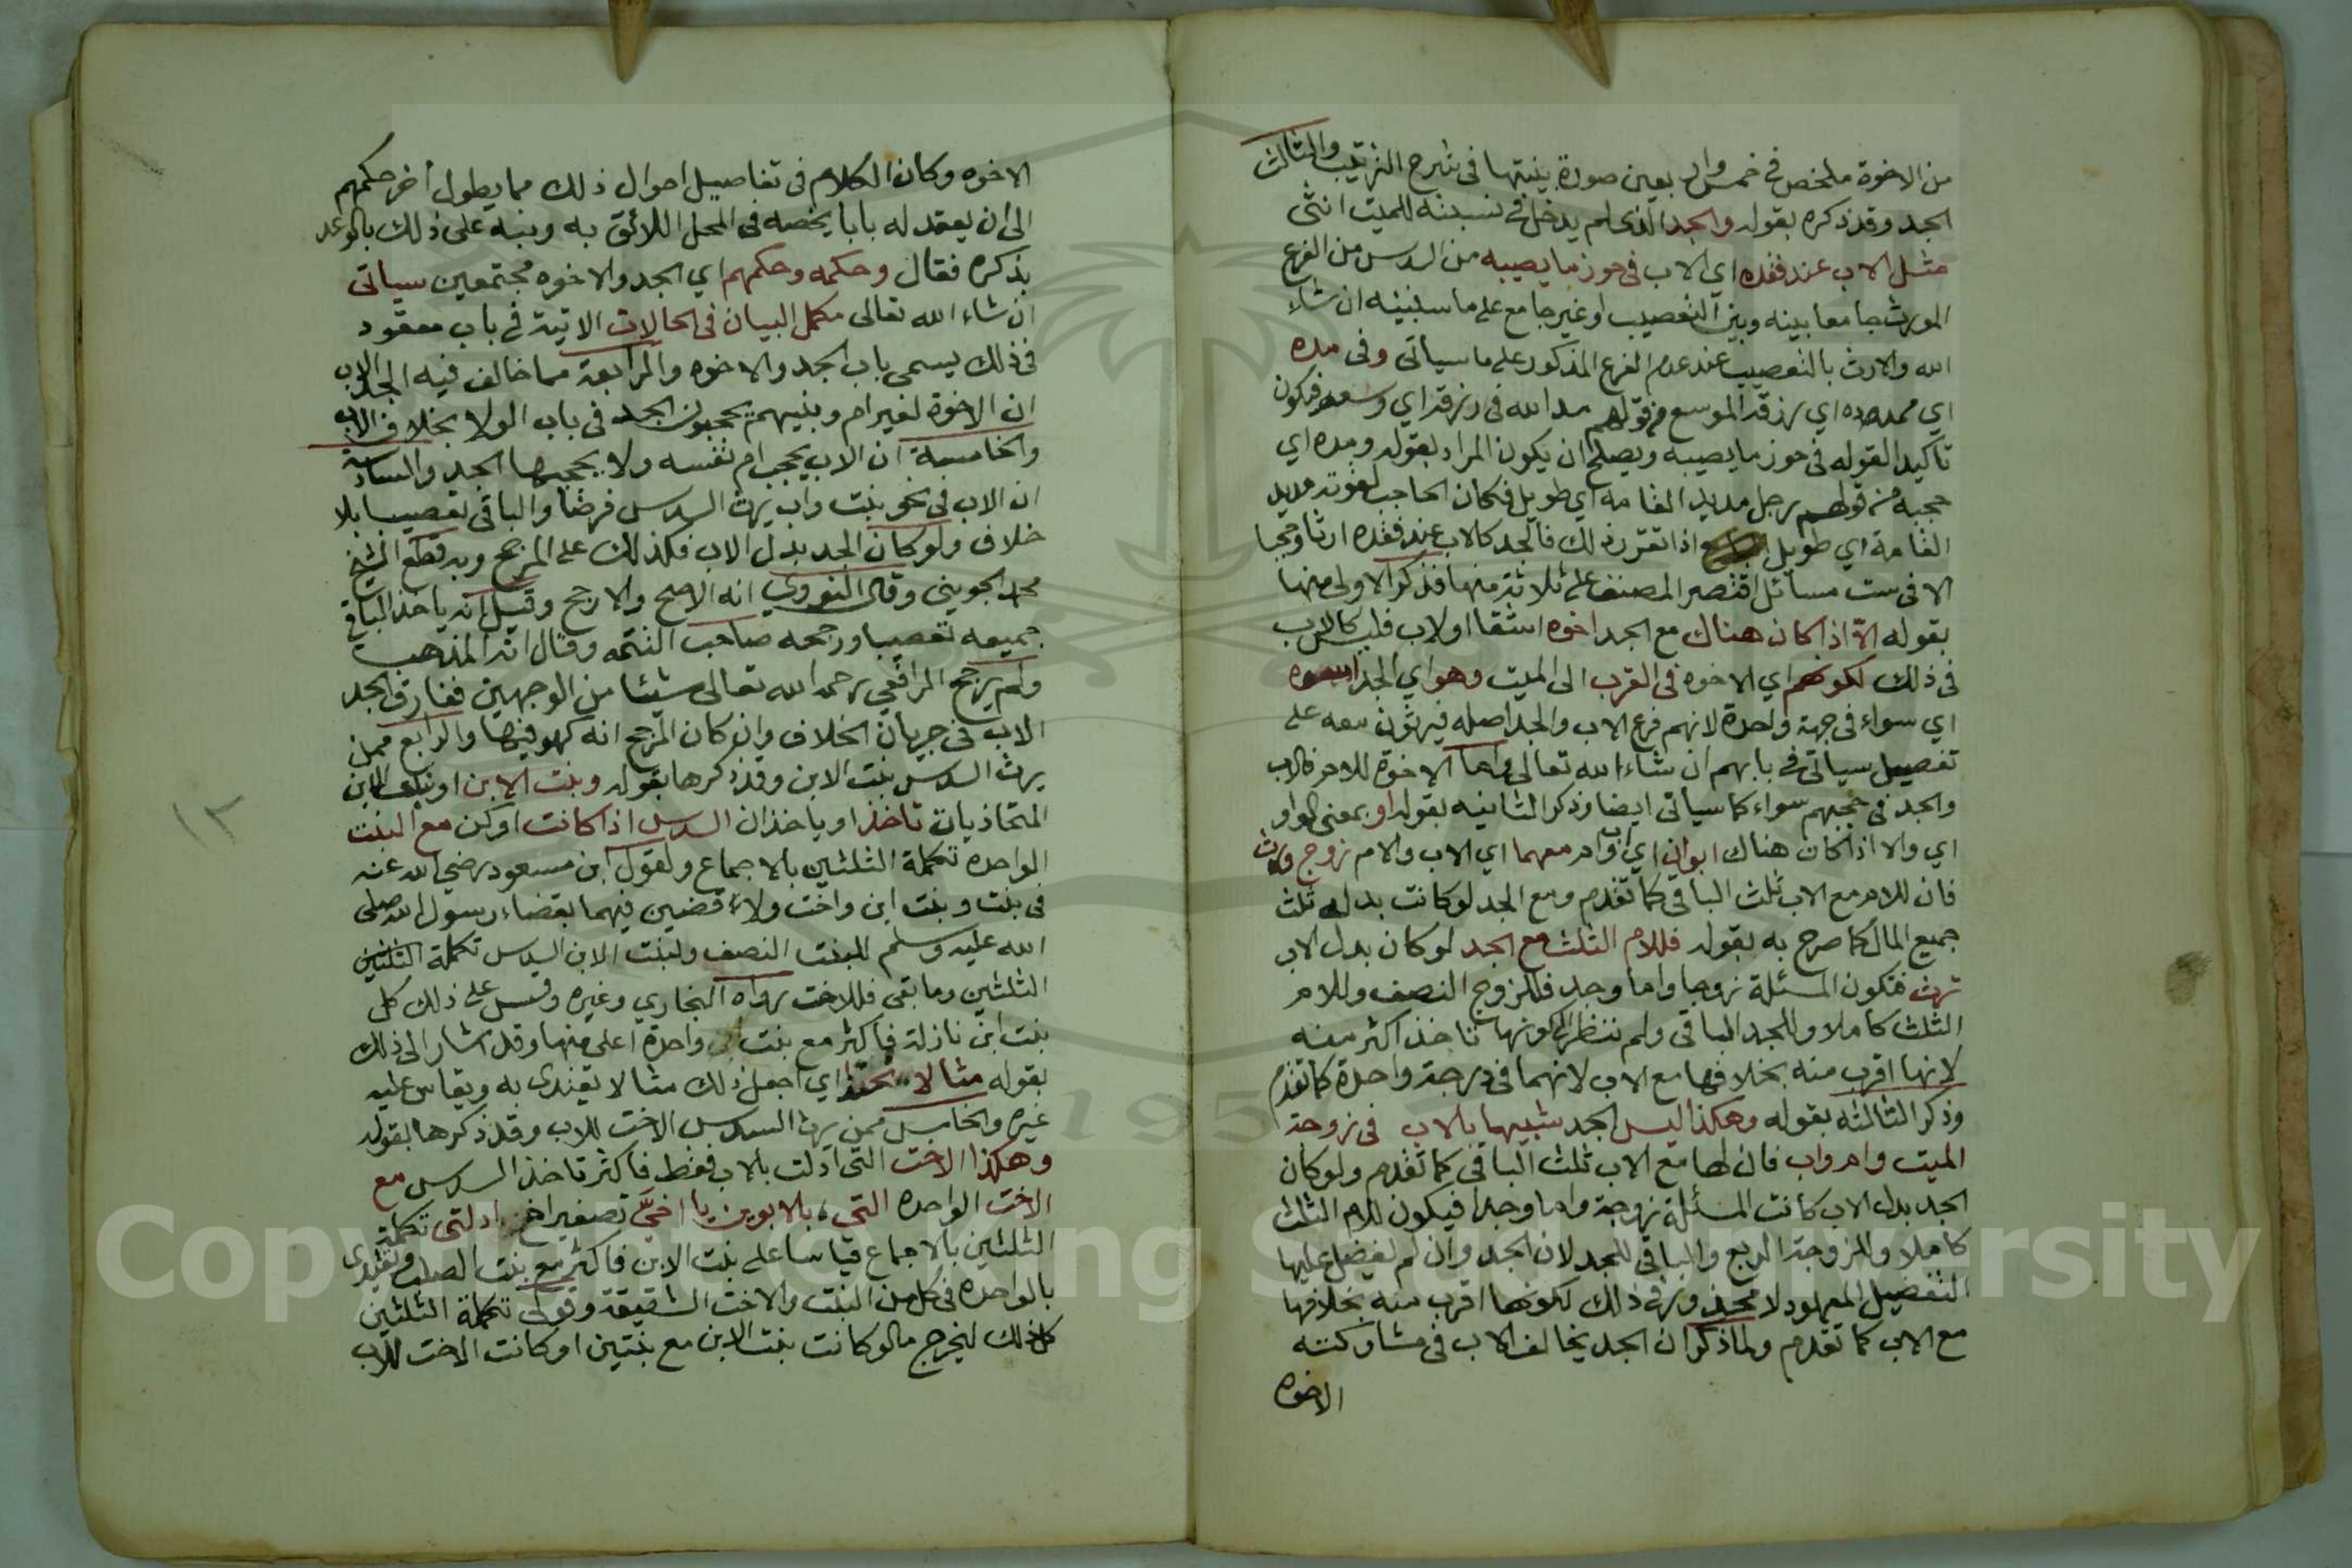 من الاخوة ملخص في خمس واربعين صورة بينتها في شرح الترتيب والثالث
الجد وقد ذكره بقوله والجد الذي لم يدخل في نسبته للميت انثى
مثل الاب عند فقده اي الاب في حوز ما يصيبه من السدس من الفرع
الورث جامعا بينه وبين التعصيب او غير جامع على ما سنبينه ان شاء
الله والارث بالتعصيب عند عدم الفرع المذكور على ما سياتي وفي مده
اي ممدوده اي رزقه الموسع من قولهم مد الله في رزقه اي وسعه فيكون
تاكيدا لقوله في حوز ما يصيبه ويصلح ان يكون المراد بقوله ومده اي
حجبه من قولهم رجل مديد القامة اي طويل فكان الحاجب لقوته مديد
القامة اي طويل اذا تقرر ذلك فالجد كالاب عند فقده ارثا وحجبا
الا في ست مسائل اقتصر المصنف على ثلاثة منها فذكر الاولى منها
بقوله الا اذا كان هناك مع الجد اخوه اشقا او لاب فليس كالاب
في ذلك لكونهم اي الاخوه في القرب الى الميت وهو اي الجد اسوه
اي سواء في جهة واحدة لانهم فرع الاب والجد اصله فيرثون معه على
تفصيل سياتي في بابهم ان شاء الله تعالى واما الاخوة للام فالاب
والجد في حجبهم سواء كما سياتي ايضا وذكر الثانيه بقوله او بمعنى الواو
اي والا اذا كان هناك ابوان اي اب وام معهما اي الاب والام زوج ورث
فان للام مع الاب ثلث الباقي كما تقدم ومع الجد لو كانت بدله ثلث
جميع المال كما صرح به بقوله فللام الثلث مع الجد لو كان بدل الاب
ترث فتكون المسئلة زوجا واما وجد فللزوج النصف وللام
الثلث كاملا وللجد الباقي ولم ننظر الى كونها تاخذ اكثر منه
لانها اقرب منه بخلافها مع الاب لانهما في درجة واحدة كما تقدم
وذكر الثالثه بقوله وهكذا ليس الجد شبيها بالاب في زوجة
الميت وام واب فان لها مع الاب ثلث الباقي كما تقدم ولو كان
الجد بدل الاب كانت المسئلة زوجة واما وجدا فيكون للام الثلث
كاملا وللزوجة الربع والباقي للجد لان الجد وان لم يفضل عليها
التفضيل المعهود لا محذور في ذلك لكونها اقرب منه بخلافها
مع الاب كما تقدم ولما ذكر ان الجد يخالف الاب في مشاركته
الاخوه
الاخوه وكان الكلام في تفاصيل احوال ذلك مما يطول اخر حكمهم
الى ان يعقد له بابا يخصه في المحل اللائق به ونبه على ذلك بالوعد
بذكره فقال وحكمه وحكمهم اي الجد والاخوه مجتمعين سياتي
ان شاء الله تعالى مكمل البيان في الحالات الاتية في باب معقود
في ذلك يسمى باب الجد والاخوه والرابعة مما خالف فيه الجد الاب
ان الاخوة لغير ام وبنيهم يحجبون الجد في باب الولا بخلاف الاب
والخامسة ان الاب يحجب ام نفسه ولا يحجبها الجد والسادسة
ان الاب في نحو بنت واب يرث السدس فرضا والباقي تعصيبا بلا
خلاف ولو كان الجد بدل الاب فكذلك على المرجح وبه قطع الشيخ
محمد الجويني وقال النووي انه الاصح والارجح وقيل انه ياخذ الباقي
جميعه تعصيبا ورجحه صاحب التتمه وقال انه المذهب
ولم يرجح الرافعي رحمه الله تعالى شيئا من الوجهين ففارق الجد
الاب في جريان الخلاف وان كان المرجح انه كهو فيها والرابع ممن
يرث السدس بنت الابن وقد ذكرها بقوله وبنت الابن او بنات الابن
المتحاذيات تاخذ او ياخذان السدس اذا كانت او كن مع البنت
الواحده تكملة الثلثين بالاجماع ولقول ابن مسعود رضي الله عنه
في بنت وبنت ابن واخت ولاء قضين فيهما بقضاء رسول الله صلى
الله عليه وسلم للبنت النصف ولبنت الابن السدس تكملة الثلثين
الثلثين وما بقي فللاخت رواه البخاري وغيره وقس على ذلك كل
بنت ابن نازلة فاكثر مع بنت ابن واحدة اعلى منها وقد اشار الى ذلك
بقوله مثالا يحتذا اي اجعل ذلك مثالا يقتدى به ويقاس عليه
غيره والخامس ممن يرث السدس الاخت للاب وقد ذكرها بقوله
وهكذا الاخت التي ادلت بالاب فقط فاكثر تاخذ السدس مع
الاخت الواحده التي بالابوين يا اخيَّ تصغير اخ ادلتى تكملة
الثلثين بالاجماع قياسا على بنت الابن فاكثر مع بنت الصلب وتقييدى
بالواحده في كل من البنت والاخت الشقيقة وقولى تكملة الثلثين
كذلك ليخرج ما لو كانت بنت الابن مع بنتين او كانت الاخت للاب
١٢
Copyright © King Saud University
1957